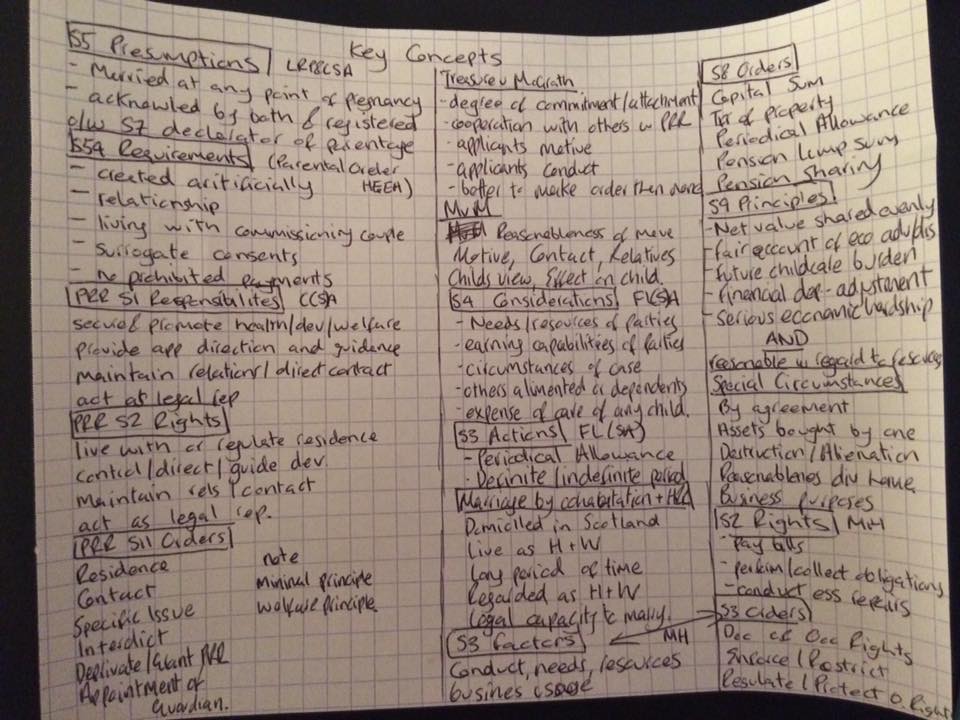 Key Concepts
S5 Presumptions LRP&CSA
- Married at any point of pregnancy
- acknowled by both & registered
o/w S7 declarator of parentage
S54 Requirements (Parental Order
HEEA)
- created aritificially
- relationship
- living with commissioning couple
- surrogate consents
- no prohibited payments
PRR S1 Responsibilites CCSA
secure & promote health/dev/welfare
provide app direction and guidence
maintain relations/direct contact
act as legal rep
PRR S2 Rights
live with or regulate residence
control/direct/guide dev.
maintain rels/contact
act as legal rep.
PRR S11 Orders
Residence note
Contact minimal principle
Specific Issue welfare principle.
Interdict
Deprivate/Grant PRR
Appointment of
Guardian.
Treasure v McGrath
- degree of commitment/attachment
- cooperation with others w PRR
- applicants motive
- applicants conduct
- better to make order then none
MvM
Reasonableness of move
Motive, Contact, Relatives
Childs view, Effect on child.
S4 Considerations FL(S)A
- Needs/resources of parties
- earning capabilities of parties
- circumstances of case
- others alimented or dependents
- expense of care of any child.
S3 Actions FL(SA)
- Periodical Allowance
- Definite/indefinite period
Marriage by cohabitation + H&R
Domiciled in Scotland
Live as H+W
Long period of time
Regarded as H+W
Legal capacity to marry.
S3 Factors MH
Conduct, needs, resources
busines usage
S8 Orders
Capital Sum
Tsr of Property
Periodical Allowance
Pension Lump Sum
Pension Sharing
S9 Principles
- Net value shared evenly
- fair account of eco adv/dis
- future childcare burden
- financial dep - adjustment
- Serious economic hardship
AND
reasonable w regard to resources
Special Circumstances
By agreement
Assets bought by one
Destruction/Alienation
Reasonablenes div home
Business purposes
S2 Rights MH
- pay bills
- perform/collect obligations
- conduct ess repairs
S3 Orders
Dec of Occ Rights
Enforce/Restrict
Regulate/Protect O. Right